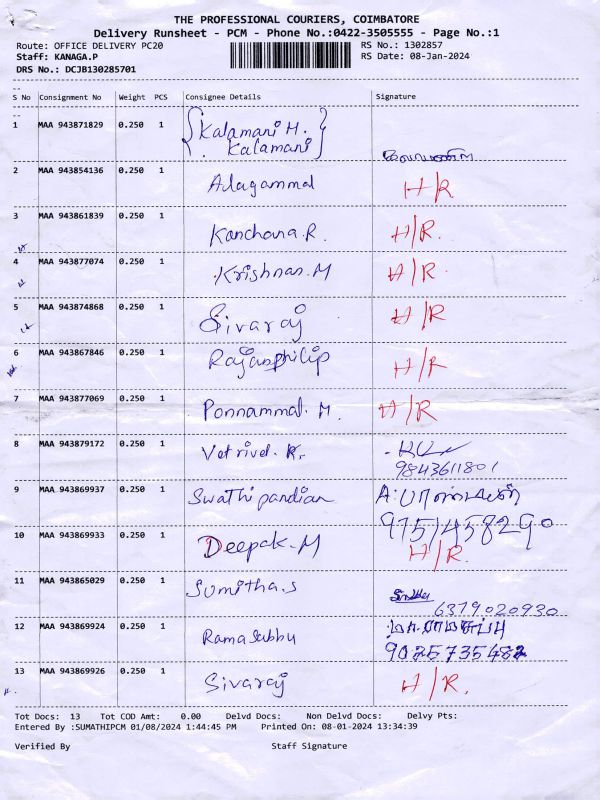 THE PROFESSIONAL COURIERS, COIMBATORE
Delivery Runsheet - PCM - Phone No.:0422-3505555 - Page No.:1
Route: OFFICE DELIVERY PC20 RS No.: 1302857
Staff: KANAGA.P RS Date: 08-Jan-2024
DRS No.: DCJB130285701
S No Consignment No Weight PCS Consignee Details Signature
1 MAA 943871829 0.250 1 Kalamani M.
Kalamani
2 MAA 943854136 0.250 1 Alagammal H/R
3 MAA 943861839 0.250 1 Kanchana.R. H/R.
4 MAA 943877074 0.250 1 Krishnan.M H/R.
5 MAA 943874868 0.250 1 Sivaraj H/R.
6 MAA 943867846 0.250 1 Rajanphilip H/R
7 MAA 943877069 0.250 1 Ponnammal.M. H/R
8 MAA 943879172 0.250 1 Vetrivel.K.
9843611801
9 MAA 943869937 0.250 1 Swathi pandian A. பாண்டியன்
9751458290
10 MAA 943869933 0.250 1 Deepak.M H/R.
11 MAA 943865029 0.250 1 Sumitha.S
6379020930
12 MAA 943869924 0.250 1 Ramasubbu மா.ராமசுப்பு
9025735482
13 MAA 943869926 0.250 1 Sivaraj H/R.
Tot Docs: 13 Tot COD Amt: 0.00 Delvd Docs: Non Delvd Docs: Delvy Pts:
Entered By :SUMATHIPCM 01/08/2024 1:44:45 PM Printed On: 08-01-2024 13:34:39
Verified By Staff Signature